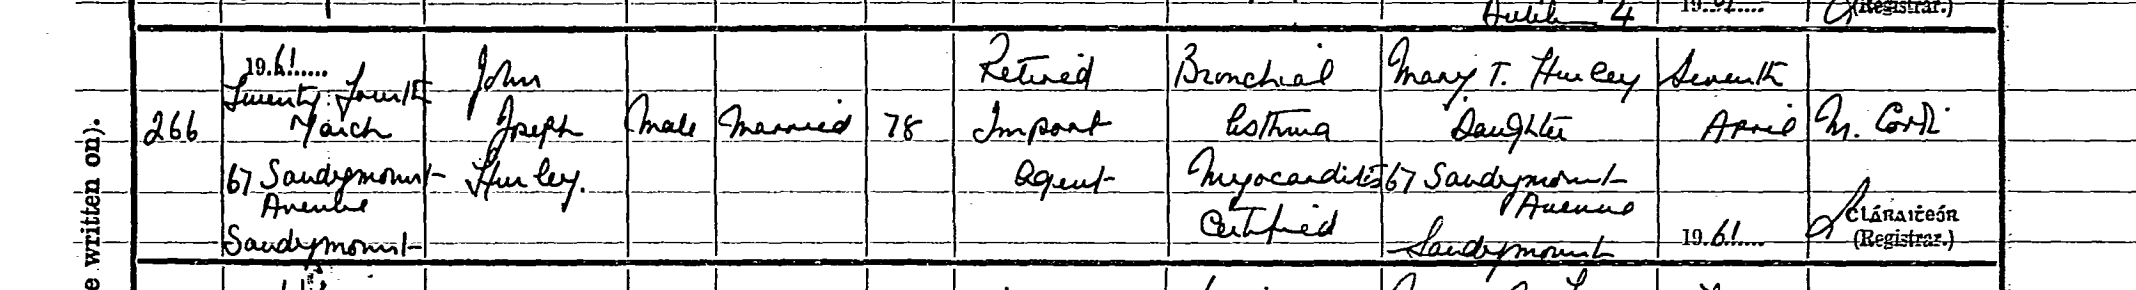 Dublin 4
(Registrar.)
266
19.61.....
Twenty Fourth
March
67 Sandymount
Avenue
Sandymount
John
Joseph
Hurley.
Male
Married
78
Retired
Import
Agent
Bronchial
Asthma
Myocarditis
Certified
Mary T. Hurley
Daughter
67 Sandymount
Avenue
Sandymount
Seventh
April
19.61.....
CLÁRAIṪEOIR
(Registrar.)
e written on).